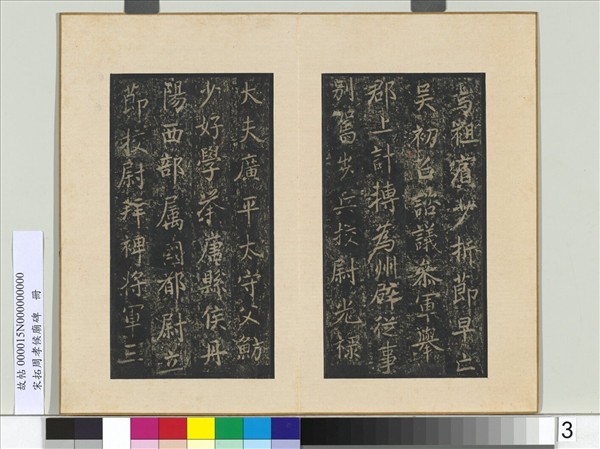 焉祖賓少折節早亡
吳初召諮議參軍舉
郡上計轉為州辟從事
別駕步兵校尉光祿
大夫廣平太守父魴
少好學舉唐縣侯丹
陽西部属國都尉立
節校尉拜裨將軍三
故帖 000015N000000000
宋拓周孝侯廟碑 冊
3